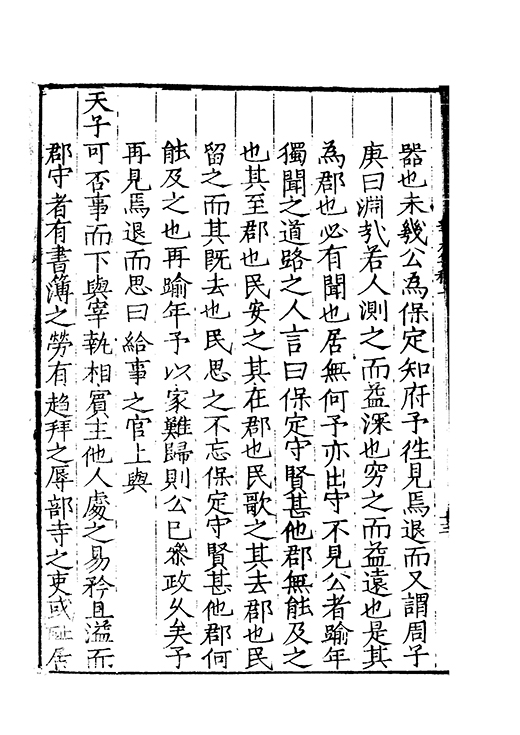 器也未幾公為保定知府予徃見焉退而又謂周子
庚曰淵㢤若人測之而益深也窮之而益遠也是其
為郡也必有聞也居無何予亦出守不見公者踰年
獨聞之道路之人言曰保定守賢甚他郡無能及之
也其至郡也民安之其在郡也民歌之其去郡也民
留之而其既去也民思之不忘保定守賢甚他郡何
能及之也再踰年予以家難歸則公已叅政乆矣予
再見焉退而思曰給事之官上與
天子可否事而下與宰執相賓主他人處之易矜且溢而
郡守者有書簿之勞有趨拜之辱部寺之吏或
居